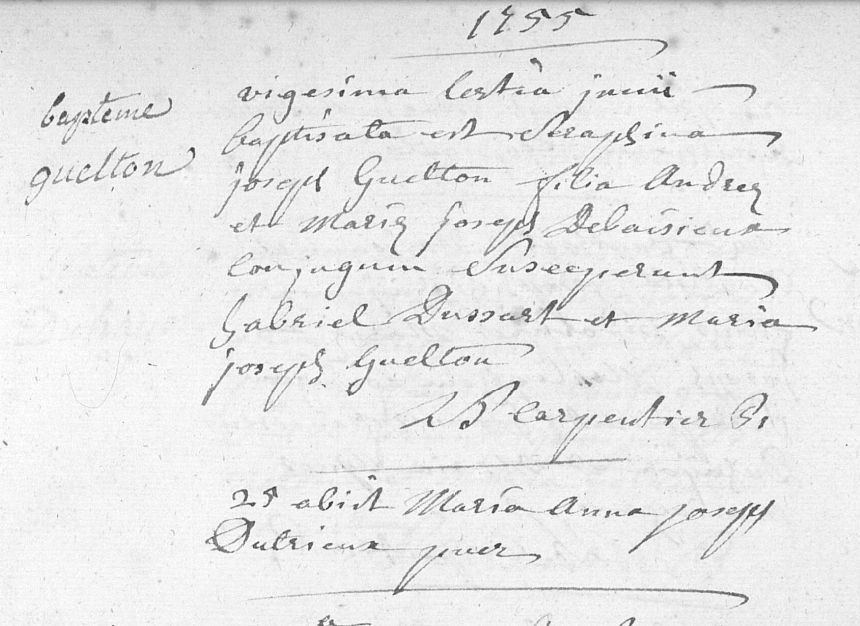 1755
baptême
guelton
vigesima tertia junii
baptisata est Seraphina
joseph Guelton filia Andreæ
et Mariæ joseph Delaisieux
conjugum Susceperunt
gabriel Dussart et Maria
joseph Guelton
Carpentier
25 abiit Maria Anna joseph
Dutrieux puer